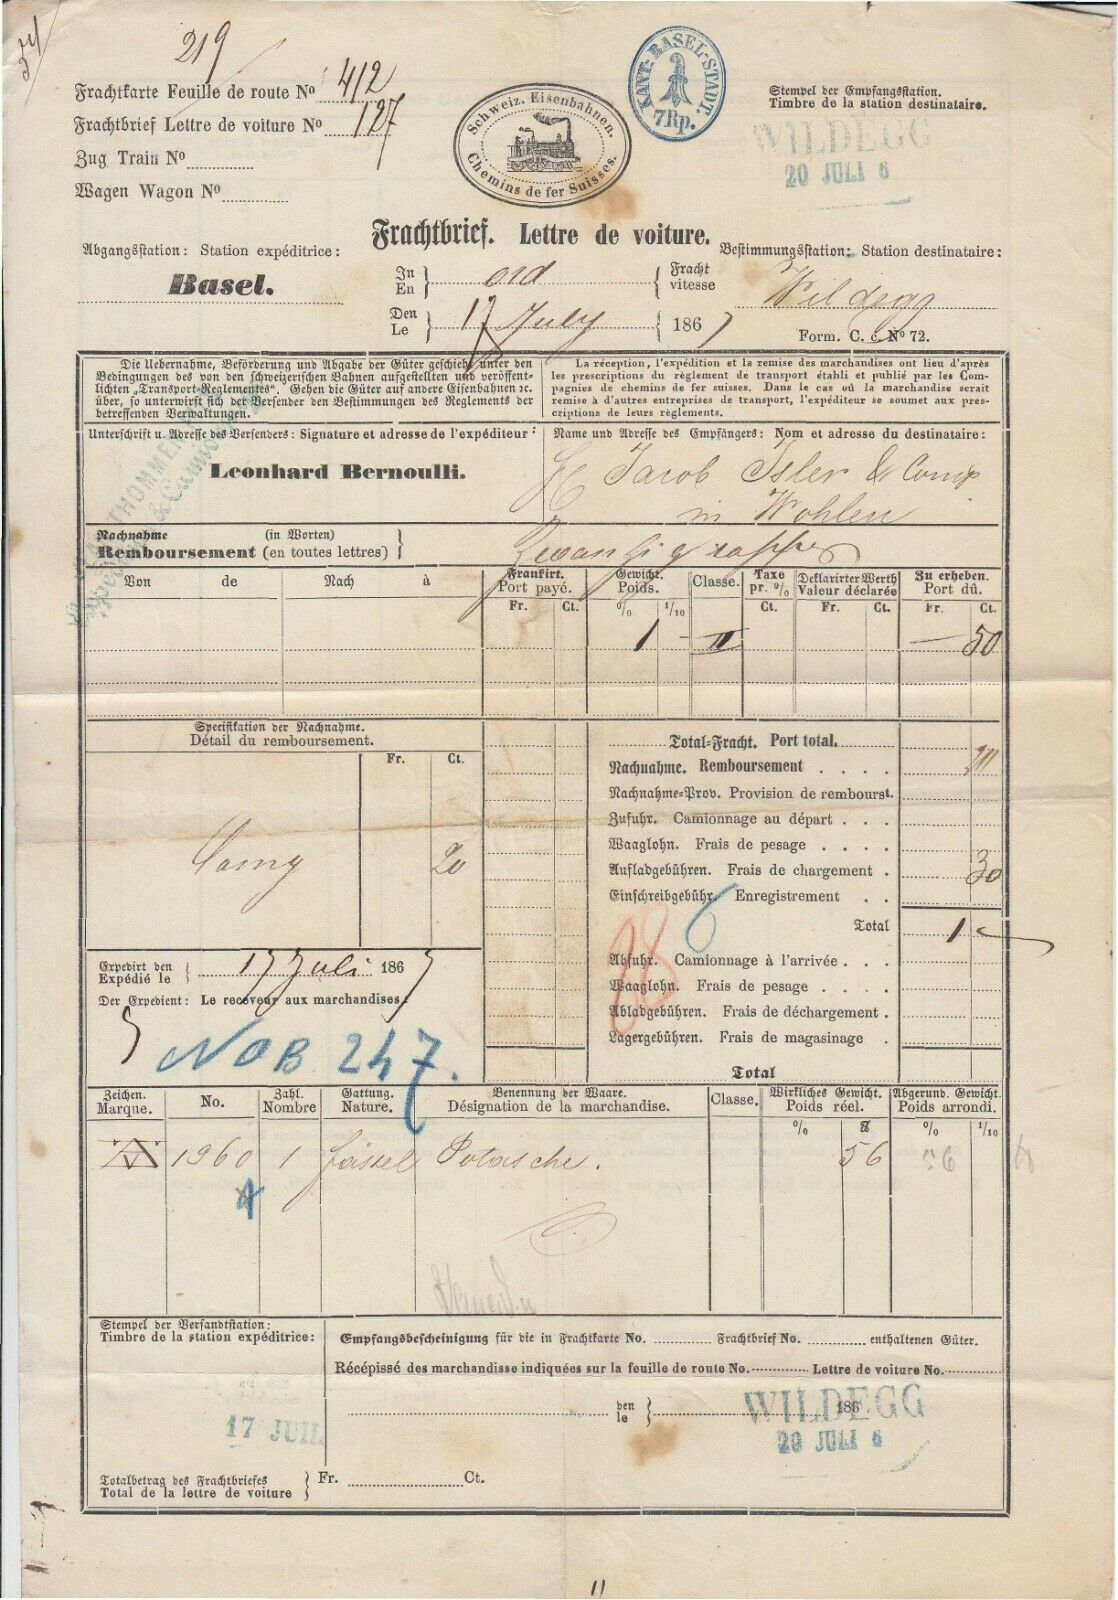 219
Frachtkarte Feuille de route No 412
Frachtbrief Lettre de voiture No 127
Zug Train No
Wagen Wagon No
Schweiz. Eisenbahnen.
Chemins de fer Suisses.
KANT: BASEL-STADT.
7 Rp.
Stempel der Empfangsstation.
Timbre de la station destinataire.
WILDEGG
20 JULI 6
Frachtbrief. Lettre de voiture.
Abgangsstation: Station expéditrice:
Basel.
In
En
ord
Fracht
vitesse
Den
Le
17 July 1867
Bestimmungsstation: Station destinataire:
Wildegg
Form. C. c. No 72.
Die Uebernahme, Beförderung und Abgabe der Güter geschieht unter den
Bedingungen des von den schweizerischen Bahnen aufgestellten und veröffent-
lichten „Transport-Reglementes“. Gehen die Güter auf andere Eisenbahnen ꝛc.
über, so unterwirft sich der Versender den Bestimmungen des Reglements der
betreffenden Verwaltungen.
La réception, l'expédition et la remise des marchandises ont lieu d'après
les prescriptions du règlement de transport établi et publié par les Com-
pagnies de chemins de fer suisses. Dans le cas où la marchandise serait
remise à d'autres entreprises de transport, l'expéditeur se soumet aux pres-
criptions de leurs règlements.
Unterschrift u. Adresse des Versenders: Signature et adresse de l'expéditeur:
Leonhard Bernoulli.
THOMMEN
Name und Adresse des Empfängers: Nom et adresse du destinataire:
Jacob Isler & Comp
in Wohlen
Nachnahme (in Worten)
Remboursement (en toutes lettres)
Zwanzig rappen
Von de
Nach à
Frankirt.
Port payé.
Fr. Ct.
Gewicht.
Poids.
% 1/10
Classe.
Taxe
pr. %
Ct.
Deklarirter Werth
Valeur déclarée
Fr. Ct.
Zu erheben.
Port dû.
Fr. Ct.
1 — II — 50
Spezifikation der Nachnahme.
Détail du remboursement.
Fr. Ct.
20
Total-Fracht. Port total.
Nachnahme. Remboursement 20
Nachnahme-Prov. Provision de rembourst.
Zufuhr. Camionnage au départ
Waaglohn. Frais de pesage
Aufladgebühren. Frais de chargement 30
Einschreibgebühr. Enregistrement
Total 1 —
Abfuhr. Camionnage à l'arrivée
Waaglohn. Frais de pesage
Abladgebühren. Frais de déchargement
Lagergebühren. Frais de magasinage
Total
Expedirt den
Expédié le
17 Juli 1867
Der Expedient: Le receveur aux marchandises:
NOB 247.
Zeichen.
Marque.
No.
Zahl.
Nombre
Gattung.
Nature.
Benennung der Waare.
Désignation de la marchandise.
Classe.
Wirkliches Gewicht.
Poids réel.
% ℔
Abgerund. Gewicht
Poids arrondi.
% 1/10
1960 1 fässel Potasche. 56 56
Stempel der Versandtstation:
Timbre de la station expéditrice:
17 JUIL
Empfangsbescheinigung für die in Frachtkarte No. Frachtbrief No. enthaltenen Güter.
Récépissé des marchandisse indiquées sur la feuille de route No. Lettre de voiture No.
den
le
186
WILDEGG
20 JULI 6
Totalbetrag des Frachtbriefes
Total de la lettre de voiture
Fr. Ct.